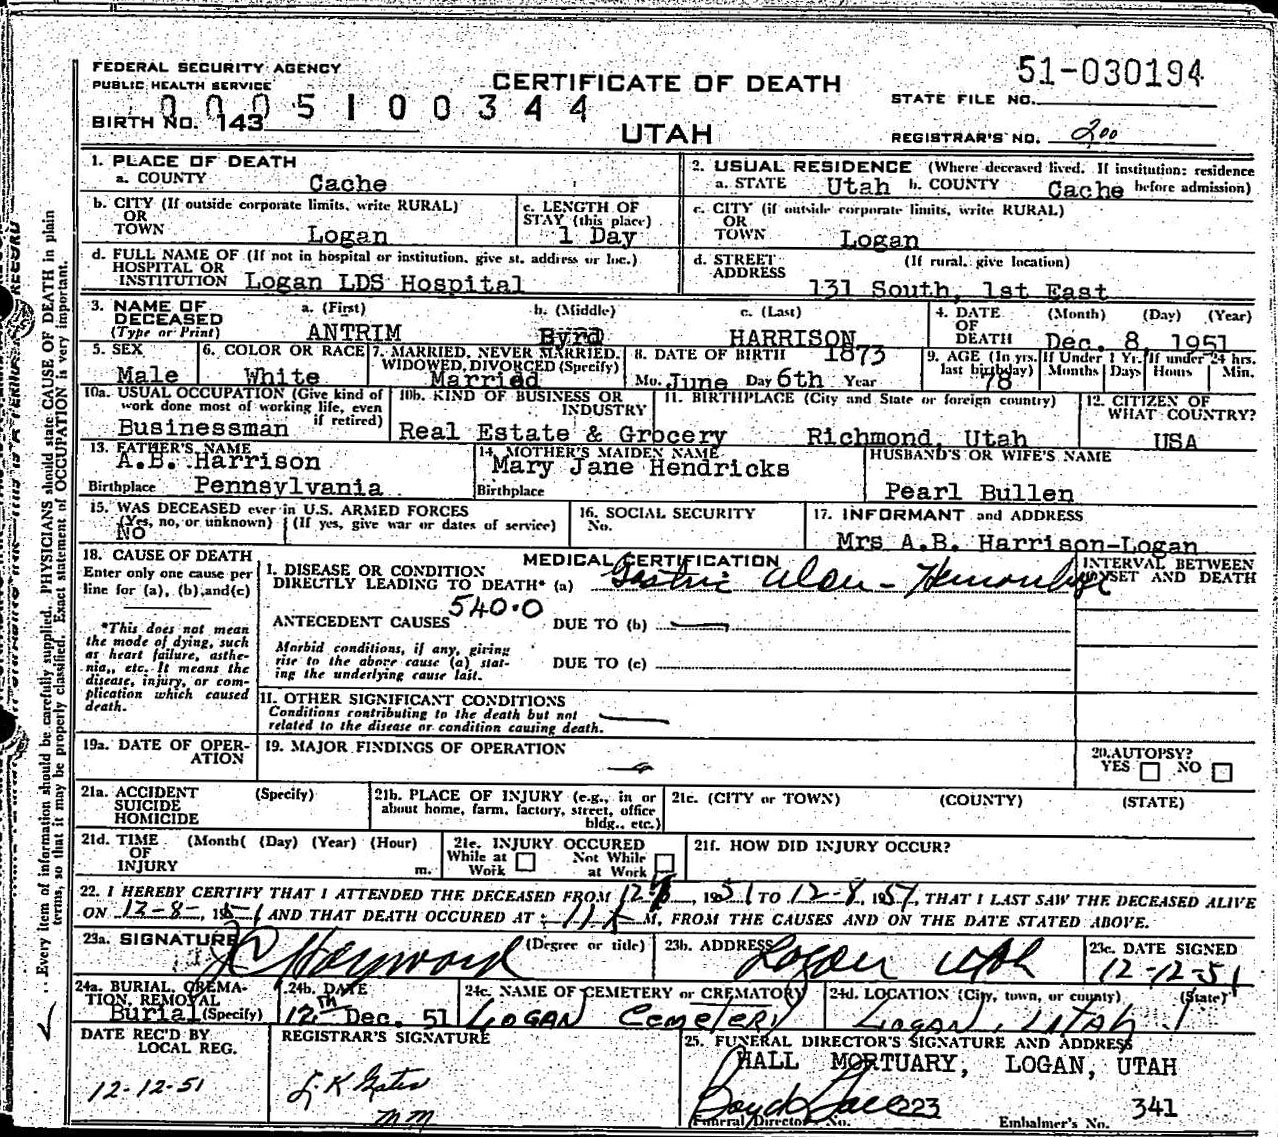 FEDERAL SECURITY AGENCY
PUBLIC HEALTH SERVICE
CERTIFICATE OF DEATH
51-030194
STATE FILE NO.
0005100344
BIRTH NO. 143
UTAH
REGISTRAR'S NO. 200
1. PLACE OF DEATH
a. COUNTY Cache
2. USUAL RESIDENCE (Where deceased lived. If institution: residence before admission)
a. STATE Utah b. COUNTY Cache
b. CITY (If outside corporate limits, write RURAL)
OR TOWN Logan
c. LENGTH OF STAY (this place)
1 Day
c. CITY (if outside corporate limits, write RURAL)
OR TOWN Logan
d. FULL NAME OF (If not in hospital or institution, give st. address or loc.)
HOSPITAL OR INSTITUTION Logan LDS Hospital
d. STREET ADDRESS (If rural, give location)
131 South, 1st East
3. NAME OF DECEASED (Type or Print)
a. (First) b. (Middle) c. (Last)
ANTRIM Byrd HARRISON
4. DATE OF DEATH (Month) (Day) (Year)
Dec. 8, 1951
5. SEX
Male
6. COLOR OR RACE
White
7. MARRIED, NEVER MARRIED, WIDOWED, DIVORCED (Specify)
Married
8. DATE OF BIRTH 1873
Mo. June Day 6th Year
9. AGE (In yrs. last birthday)
78
If Under 1 Yr. Months Days
If under 24 hrs. Hours Min.
10a. USUAL OCCUPATION (Give kind of work done most of working life, even if retired)
Businessman
10b. KIND OF BUSINESS OR INDUSTRY
Real Estate & Grocery
11. BIRTHPLACE (City and State or foreign country)
Richmond, Utah
12. CITIZEN OF WHAT COUNTRY?
USA
13. FATHER'S NAME
A.B. Harrison
Birthplace Pennsylvania
14. MOTHER'S MAIDEN NAME
Mary Jane Hendricks
Birthplace
HUSBAND'S OR WIFE'S NAME
Pearl Bullen
15. WAS DECEASED ever in U.S. ARMED FORCES
(Yes, no, or unknown) (If yes, give war or dates of service)
NO
16. SOCIAL SECURITY No.
17. INFORMANT and ADDRESS
Mrs A.B. Harrison-Logan
18. CAUSE OF DEATH
Enter only one cause per line for (a), (b), and(c)
*This does not mean the mode of dying, such as heart failure, asthenia, etc. It means the disease, injury, or complication which caused death.
MEDICAL CERTIFICATION
INTERVAL BETWEEN ONSET AND DEATH
I. DISEASE OR CONDITION
DIRECTLY LEADING TO DEATH* (a) Gastric Ulcer - Hemorrhage
540.0
ANTECEDENT CAUSES DUE TO (b)
Morbid conditions, if any, giving rise to the above cause (a) stating the underlying cause last.
DUE TO (c)
II. OTHER SIGNIFICANT CONDITIONS
Conditions contributing to the death but not related to the disease or condition causing death.
19a. DATE OF OPERATION
19. MAJOR FINDINGS OF OPERATION
20. AUTOPSY?
YES NO
21a. ACCIDENT SUICIDE HOMICIDE (Specify)
21b. PLACE OF INJURY (e.g., in or about home, farm, factory, street, office bldg., etc.)
21c. (CITY or TOWN) (COUNTY) (STATE)
21d. TIME OF INJURY (Month( (Day) (Year) (Hour) m.
21e. INJURY OCCURED
While at Work Not While at Work
21f. HOW DID INJURY OCCUR?
22. I HEREBY CERTIFY THAT I ATTENDED THE DECEASED FROM 1951 TO 12-8, 1951, THAT I LAST SAW THE DECEASED ALIVE
ON 12-8-, 1951 AND THAT DEATH OCCURED AT M. FROM THE CAUSES AND ON THE DATE STATED ABOVE.
23a. SIGNATURE (Degree or title)
Hayward
23b. ADDRESS
Logan Utah
23c. DATE SIGNED
12-12-51
24a. BURIAL, CREMATION, REMOVAL
Burial (Specify)
24b. DATE
12th Dec. 51
24c. NAME OF CEMETERY or CREMATORY
LOGAN CEMETERY
24d. LOCATION (City, town, or county) (State)
LOGAN, UTAH
DATE REC'D BY LOCAL REG.
12-12-51
REGISTRAR'S SIGNATURE
25. FUNERAL DIRECTOR'S SIGNATURE AND ADDRESS
HALL MORTUARY, LOGAN, UTAH
223
341
Funeral Director's No.
Embalmer's No.
Every item of information should be carefully supplied. PHYSICIANS should state CAUSE OF DEATH in plain
terms, so that it may be properly classified. Exact statement of OCCUPATION is very important.